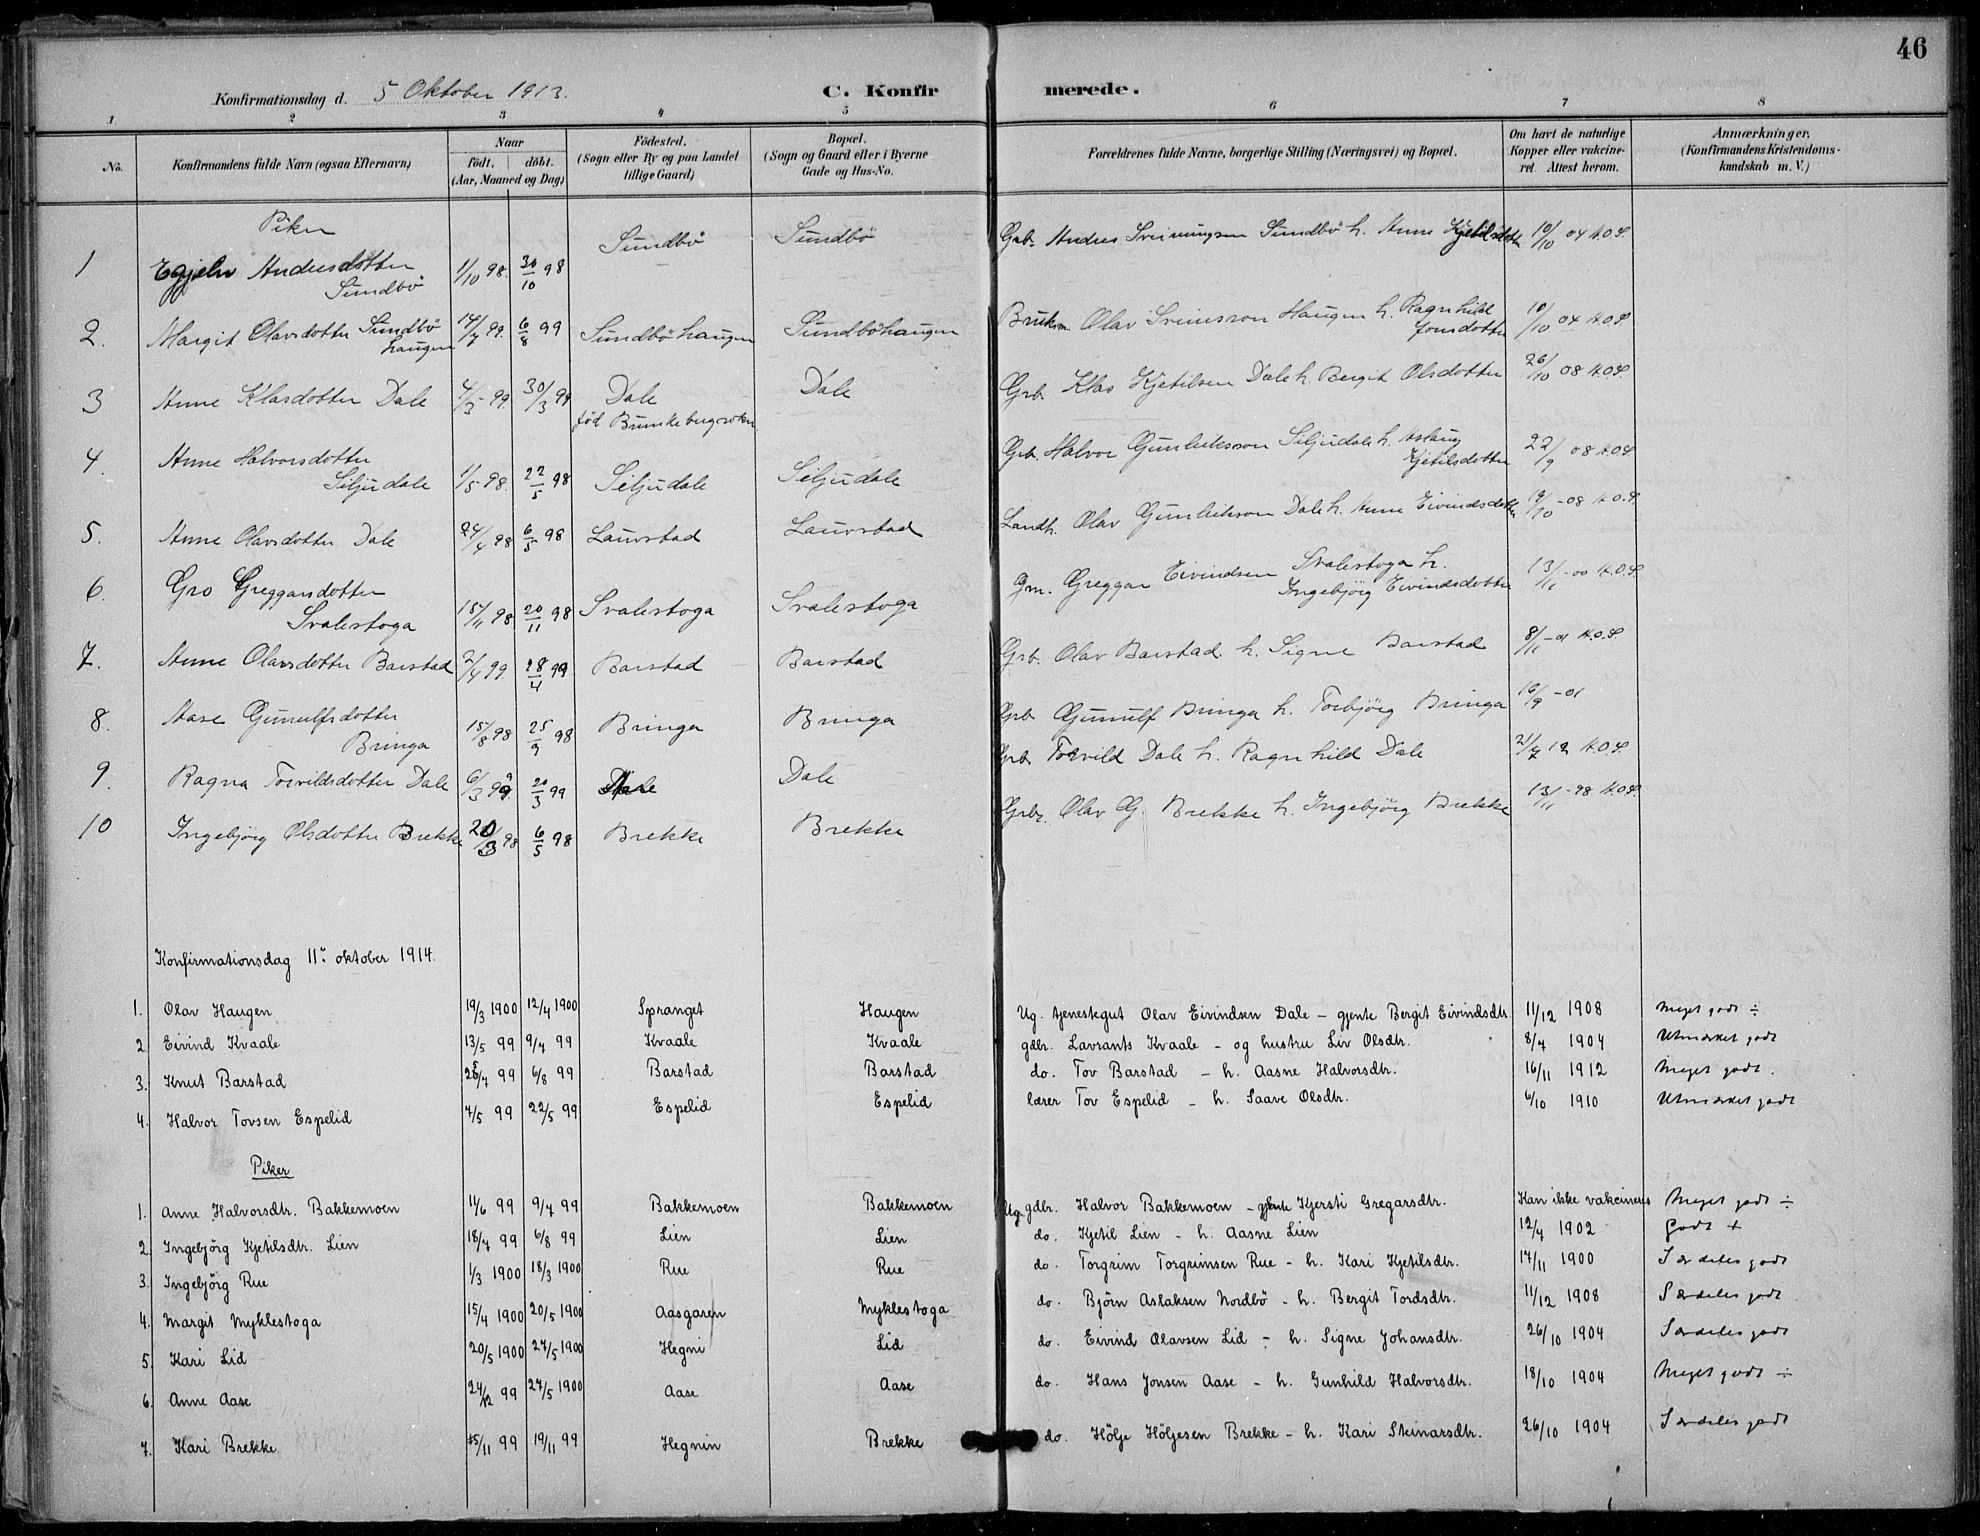 46
Konfirmationsdag d. 5 Oktober 1913.
C. Konfirmerede.
1 2 3 4 5 6 7 8
No.
Konfirmandens fulde Navn (ogsaa Efternavn)
Naar
födt. döbt.
(Aar, Maaned og Dag)
Födested.
(Sogn eller By og paa Landet
tillige Gaard)
Bopæl.
(Sogn og Gaard eller i Byerne
Gade og Hus-No.
Forældrenes fulde Navne, borgerlige Stilling (Næringsvei) og Bopæl.
Om havt de naturlige
Kopper eller vakcine-
ret Attest herom.
Anmærkninger.
(Konfirmandens Kristendoms-
kundskab m. V.)
Piker
1 Andersdotter Sundbö 1/10 98. 30/10 98 Sundbö Sundbö Grb. Andres Sveinungsen Sundbö h. Anne Kjetilsdotter 10/10 04 H.O.S.
2. Margit Olavsdotter Sundböhaugen 14/7 99. 6/8 99 Sundböhaugen Sundböhaugen Bruksm. Olav Sveinsson Haugen h. Ragnhild Jonsdotter 10/10 04 H.O.S.
3 Anne Klasdotter Dale 4/3 99. 30/3 99 Dale Dale Grb. Klas Kjetilsen Dale h. Bergit Olsdotter 26/10 08 H.O.S.
4. Anne Halvorsdotter Siljudale 1/5 98. 22/5 98 Siljudale Siljudale Grb. Halvor Gunleiksson Siljudale h. Aslaug Kjetilsdotter 22/9 08 H.O.S.
5. Anne Olavsdotter Dale 24/4 98 6/5 98 Lauvstad Lauvstad Landh. Olav Gunleikson Dale h. Anne Eivindsdotter 19/10 -08 H.O.S.
6. Gro Greggarsdotter Svalestoga 15/11 98. 20/11 98 Svalestoga Svalestoga Gm. Greggar Eivindsen Svalestoga h. Ingebjörg Eivindsdotter 13/11 -00 H.O.S.
7. Anne Olavsdotter Barstad 2/4 99. 28/4 99 Barstad Barstad Grb. Olav Barstad h. Signe Barstad 8/11 -01 H.O.S.
8. Aase Gunulfsdotter Bringa 15/8 98 25/9 98 Bringa Bringa Grb. Gunulf Bringa h. Torbjörg Bringa 10/9 -01
9. Ragna Torvildsdotter Dale 6/3 99. 20/3 99 Dale Grb. Torvild Dale h. Ragnhild Dale 2/7 12 H.O.S.
10 Ingebjörg Olsdotter Brekke 20/3 98 6/5 98 Brekke Brekke Grbr. Olav G. Brekke h. Ingebjörg Brekke 13/11 -98 H.O.S.
Konfirmationsdag 11te oktober 1914.
1. Olav Haugen 19/3 1900 12/4 1900 Spranget Haugen Ug. tjenestegut Olav Eivindsen Dale - gjente Bergit Eivindsdtr. 11/12 1908 Meget godt ÷
2. Eivind Kvaale 13/5 99 9/4 99 Kvaale Kvaale gdbr. Lavrants Kvaale - og hustru Liv Olsdtr. 8/4 1904 Utmerket godt
3. Knut Barstad 25/7 99 6/8 99 Barstad Barstad do. Tov Barstad - h. Aasne Halvorsdtr. 16/11 1912 Meget godt.
4. Halvor Tovsen Espelid 7/5 99 22/5 99 Espelid Espelid lærer Tov Espelid - h. Saave Olsdtr. 6/10 1910 Utmerket godt
Piker
1. Anne Halvorsdtr. Bakkemoen 11/6 99 9/7 99 Bakkemoen Bakkemoen Ug. gdbr. Halvor Bakkemoen - gjente Kjersti Gregarsdtr. Kan ikke vakcineres Meget godt ÷
2. Ingebjörg Kjetilsdtr. Lien 18/7 99 6/8 99 Lien Lien do. Kjetil Lien - h. Aasne Lien 12/4 1902 Godt +
3. Ingebjörg Rue 1/3 1900 18/3 1900 Rue Rue do. Torgrim Torgrimsen Rue - h. Kari Kjetilsdtr. 17/11 1900 Særdeles godt
4. Margit Myklestoga 15/4 1900 20/5 1900 Aasgaren Myklestoga do. Björn Aslaksen Nordbö - h. Bergit Tordsdtr. 11/12 1908 Særdeles godt
5. Kari Lid 20/5 1900 27/5 1900 Hegni Lid do. Eivind Olavsen Lid - h. Signe Johansdtr. 26/10 1904 Særdeles godt
6. Anne Aase 24/12 99 27/5 1900 Aase Aase do. Hans Jonsen Aase - h. Gunhild Halvorsdtr. 18/10 1904 Meget godt ÷
7. Kari Brekke 15/11 99 19/11 99 Hegnin Brekke do. Hölje Höljesen Brekke - h. Kari Steinarsdtr. 26/10 1904 Særdeles godt